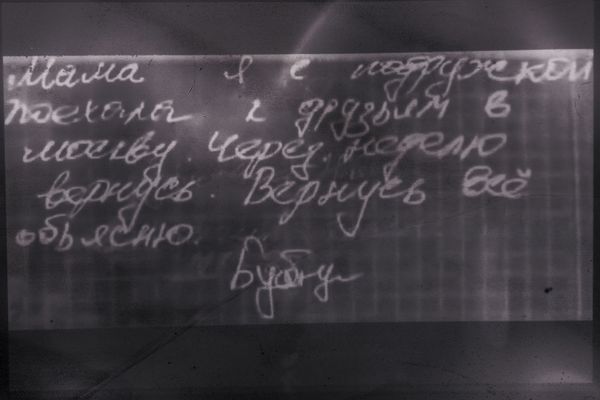 Мама я с подружкой
поехала к друзьям в
москву. Через неделю
вернусь. Вернусь всё
объясню.